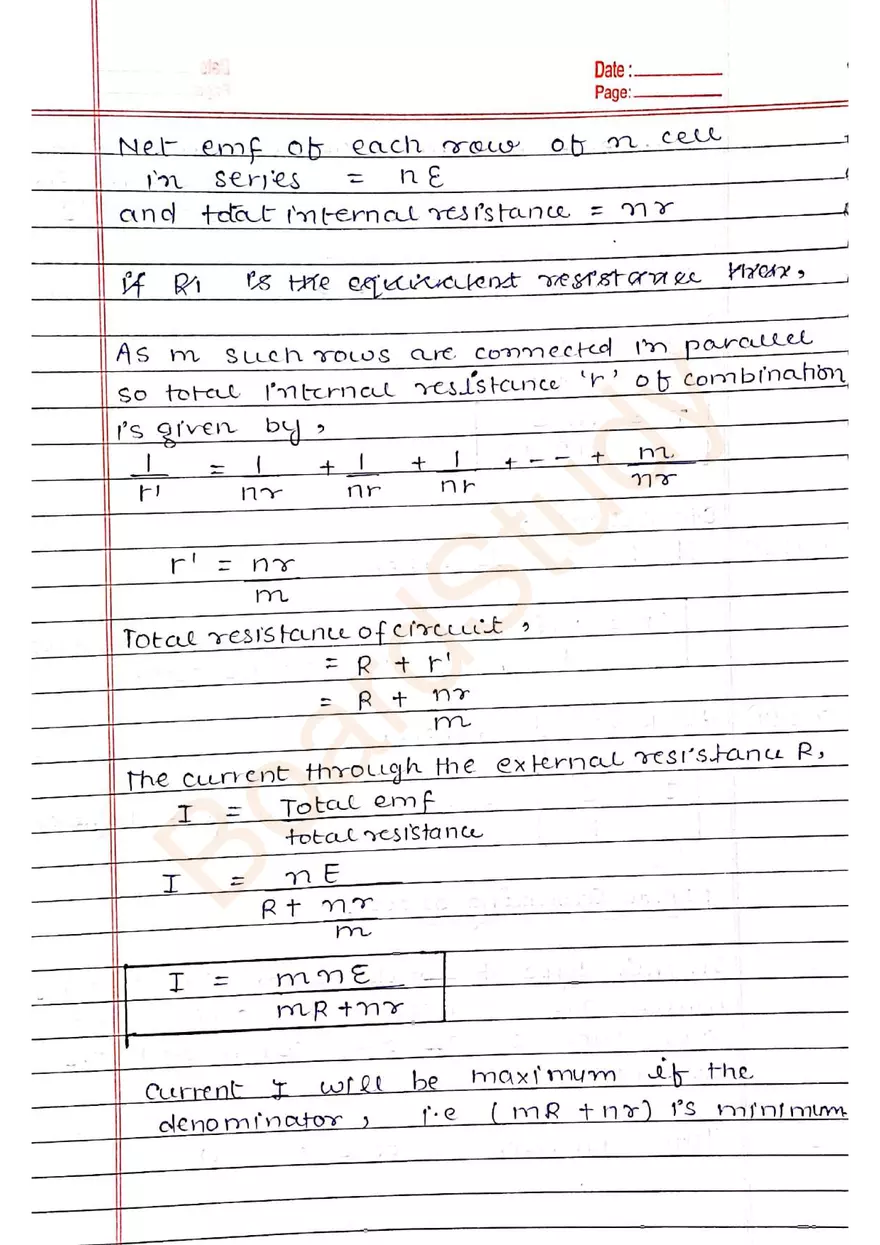 Date :
Page:
Net emf of each row of n cell
in series = nƐ
and total internal resistance = nr
if R1 is the equivalent resistance
As m such rows are connected in parallel
so total internal resistance 'r' of combination
is given by,
1/r' = 1/nr + 1/nr + 1/nr + - - + m/nr
r' = nr/m
Total resistance of circuit,
= R + r'
= R + nr/m
The current through the external resistance R,
I = Total emf / total resistance
I = nE / R + nr/m
I = mnƐ / mR + nr
Current I will be maximum if the
denominator, i.e (mR + nr) is minimum
BoardStudy